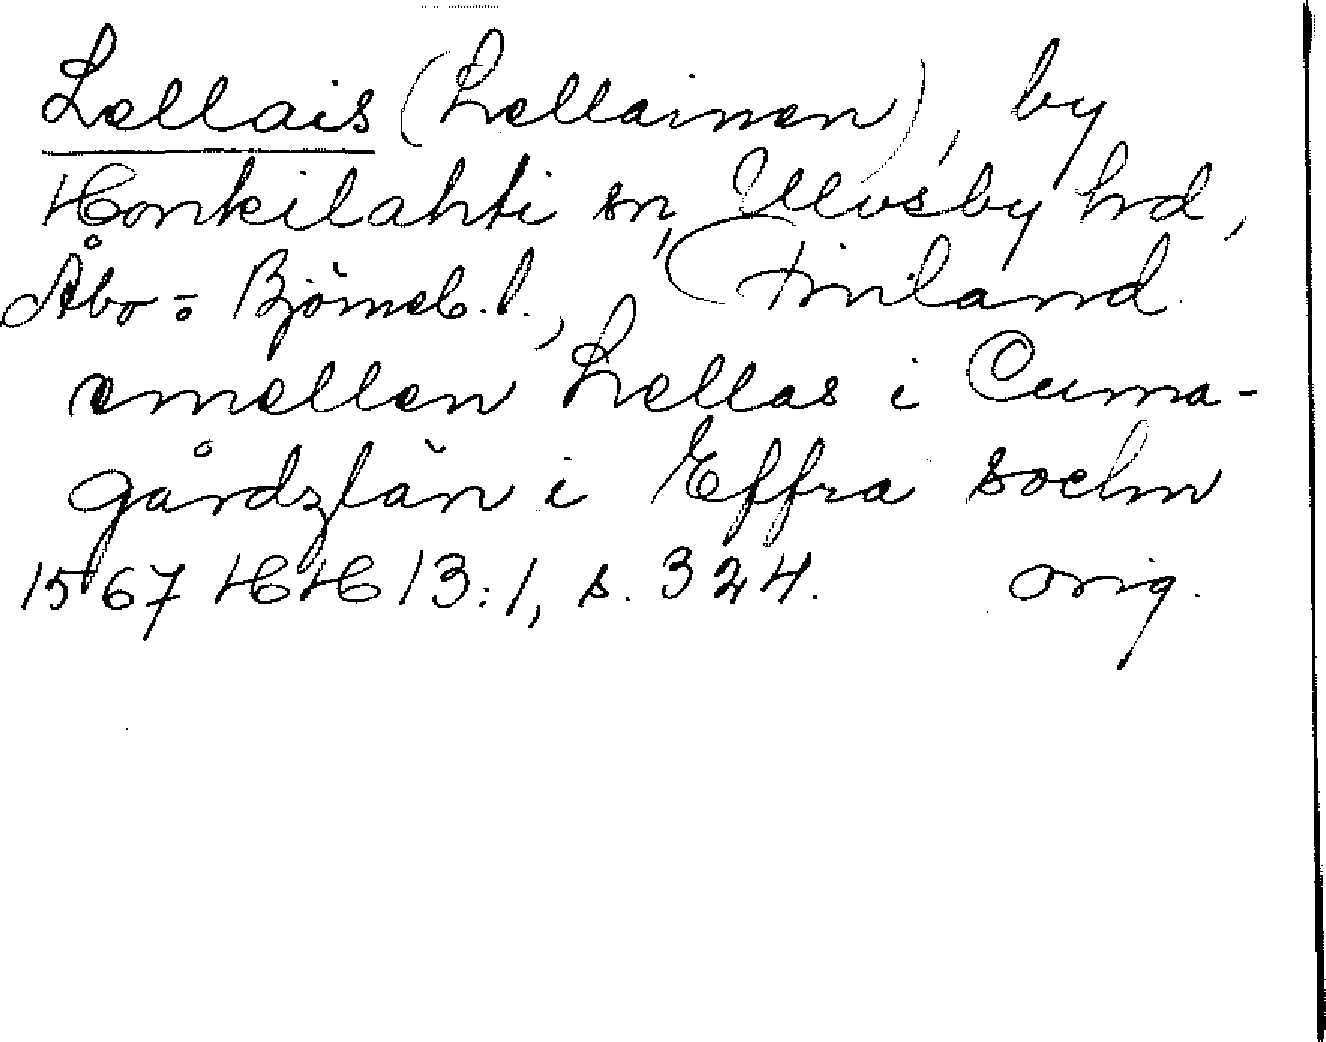 Lellais (Lellainen), by
Honkilahti sn, Ulvsby hrd,
Åbo- o Björneb. l., Finland.
emellen Lellas i Cuma-
gårdzlän i Effra sochn
1567 HH 13:1, s. 324. orig.